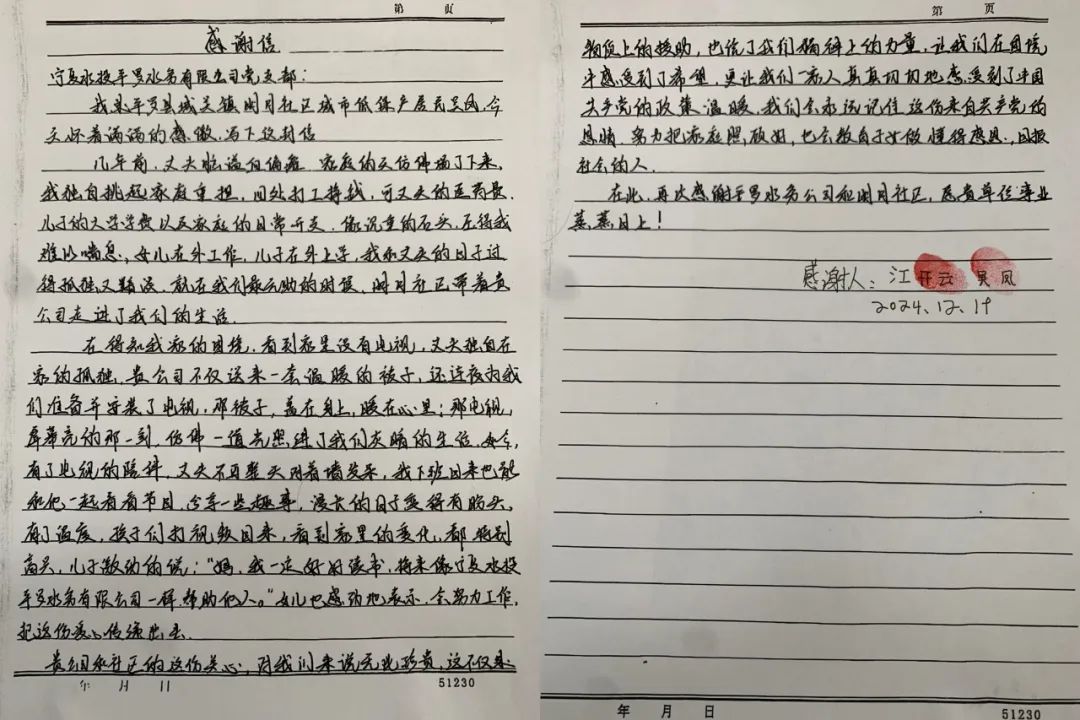 第 页
感谢信
宁夏水投平罗水务有限公司党支部：
我是平罗县城关镇明月社区城市低保户居民吴凤，今
天怀着满满的感激，写下这封信
几年前，丈夫脑溢血偏瘫，家庭的天仿佛塌了下来，
我独自挑起家庭重担，四处打工挣钱，可丈夫的医药费、
儿子的大学学费以及家庭的日常开支，像沉重的石头，压得我
难以喘息，女儿在外工作，儿子在外上学，我和丈夫的日子过
得孤独又艰难，就在我们最无助的时候，明月社区带着贵
公司走进了我们的生活。
在得知我家的困境，看到家里没有电视，丈夫独自在
家的孤独，贵公司不仅送来一套温暖的被子，还连夜为我
们准备并安装了电视，那被子，盖在身上，暖在心里；那电视，
屏幕亮的那一刻，仿佛一道光照进了我们灰暗的生活，如今，
有了电视的陪伴，丈夫不再整天对着墙发呆，我下班回来也能
和他一起看看节目，分享一些趣事，漫长的日子变得有盼头，
有了温度，孩子们打视频回来，看到家里的变化，都特别
高兴，儿子激动的说：“妈，我一定好好读书，将来像宁夏水投
平罗水务有限公司一样帮助他人。”女儿也感动地表示，会努力工作，
把这份爱心传递出去。
贵公司和社区的这份关心，对我们来说无比珍贵，这不仅是
年 月 日
51230
第 页
物质上的援助，也给了我们精神上的力量，让我们在困境
中感受到了希望，更让我们一家人真真切切地感受到了中国
共产党的政策温暖，我们会永远记住这份来自共产党的
恩情，努力把家庭照顾好，也会教育子女做懂得感恩、回报
社会的人。
在此，再次感谢平罗水务公司和明月社区，愿贵单位事业
蒸蒸日上！
感谢人：江开云 吴凤
2024.12.19
年 月 日
51230